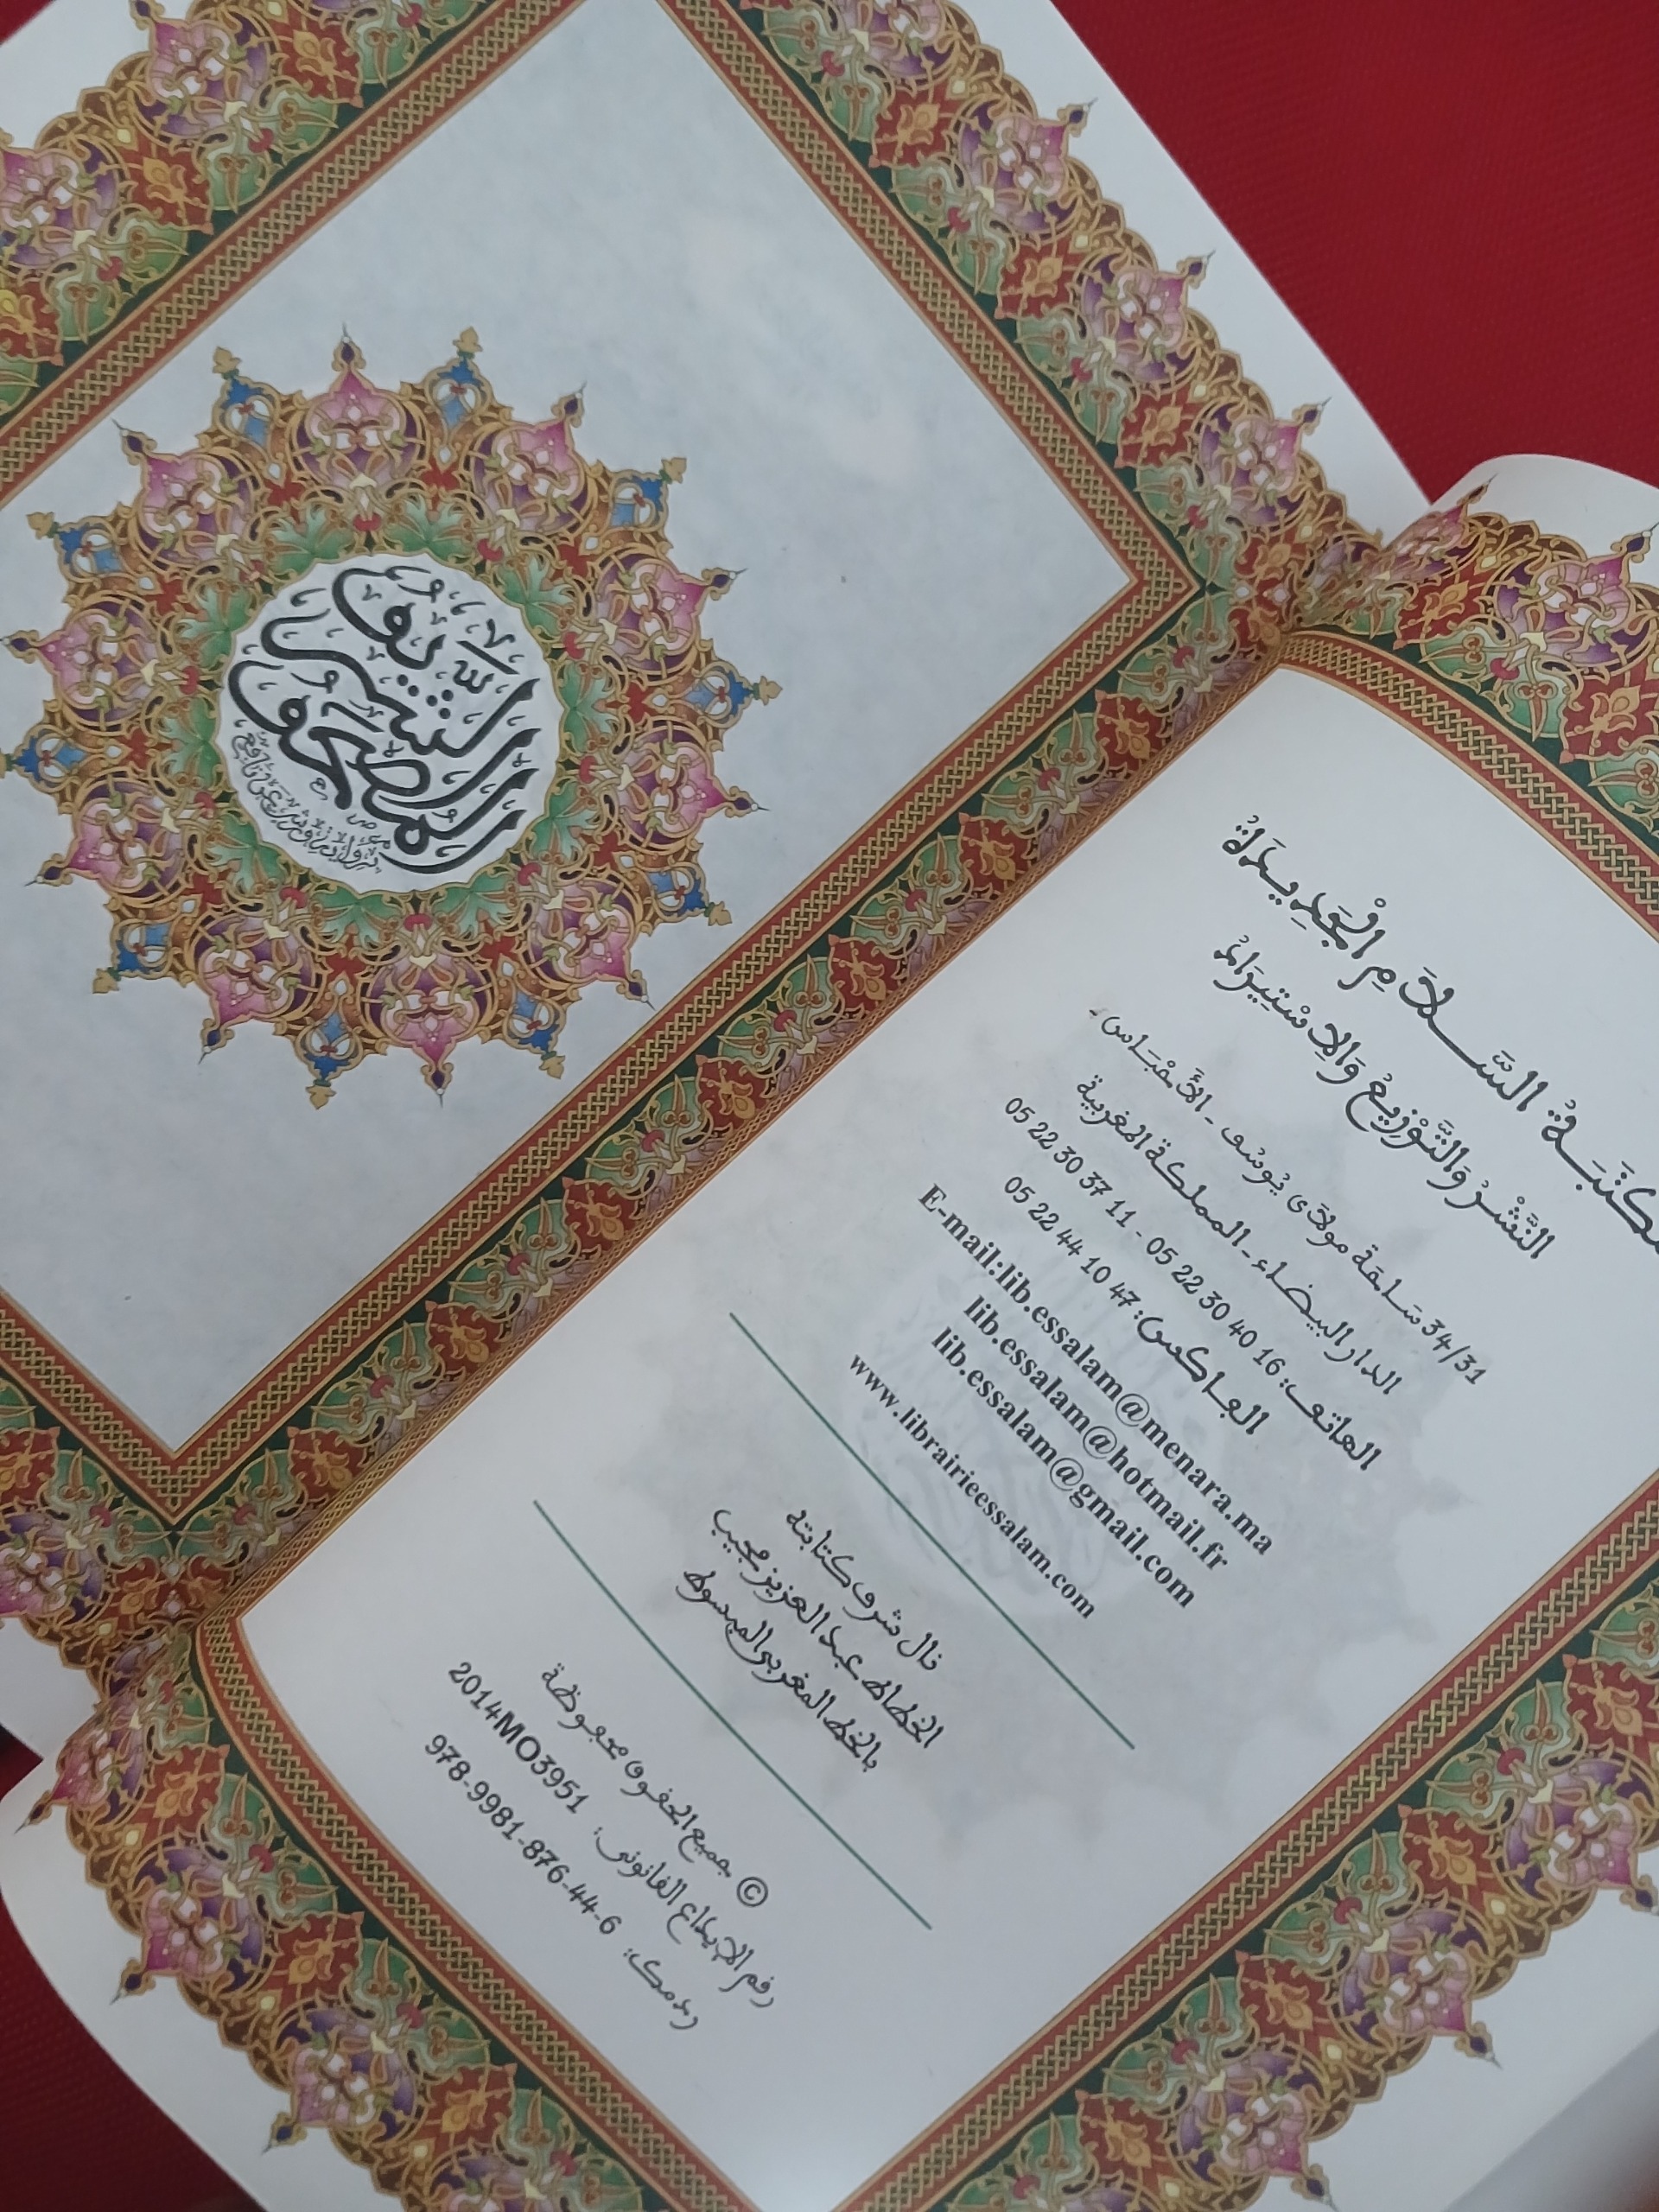 المصحف الشريف
برواية ورش عن نافع
مكتبة السَّلَامِ الْجَدِيدَةُ
النَّشْرُ وَالتَّوْزِيعُ وَالِاسْتِيرَادُ
34/31 سَاحَة مولَاي يُوسُف - الأَحْبَاس -
الدار البيضاء - المملكة المغربية
الهاتف: 05 22 30 40 16 - 05 22 30 37 11
الفاكس: 05 22 44 10 47
E-mail:lib.essalam@menara.ma
lib.essalam@hotmail.fr
lib.essalam@gmail.com
www.librairieessalam.com
نال شرف كتابته
الخطاط عبد العزيز مجيب
بالخط المغربي المبسوط
© جميع الحقوق محفوظة
رقم الإيداع القانوني: 2014MO3951
ردمك: 978-9981-876-44-6